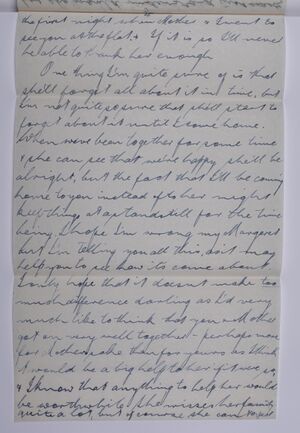 the first night when Mother & I went to
see you at the flat & If it is so I'll never
be able to thank her enough.
One thing I'm quite sure of is that
she'll forget all about it in time, but
I'm not quite so sure that she'll start to
forget about it until I come home.
When we've been together for some time
& she can see that we're happy she'll be
alright, but the fact that I'll be coming
home to you instead of to her might
keep things at a standstill for the time
being. I hope I'm wrong my Margaret
but I'm telling you all this, as it may
help you to see how it's come about.
I only hope that it doesn't make too
much difference darling as I'd very
much like to think that you & Mother
got on very well together - perhaps more
for Mother's sake than for yours as I think
it would be a big help to her if it were so,
& I know that anything to help her would
be worthwhile. She misses her family
quite a lot, but of course she can